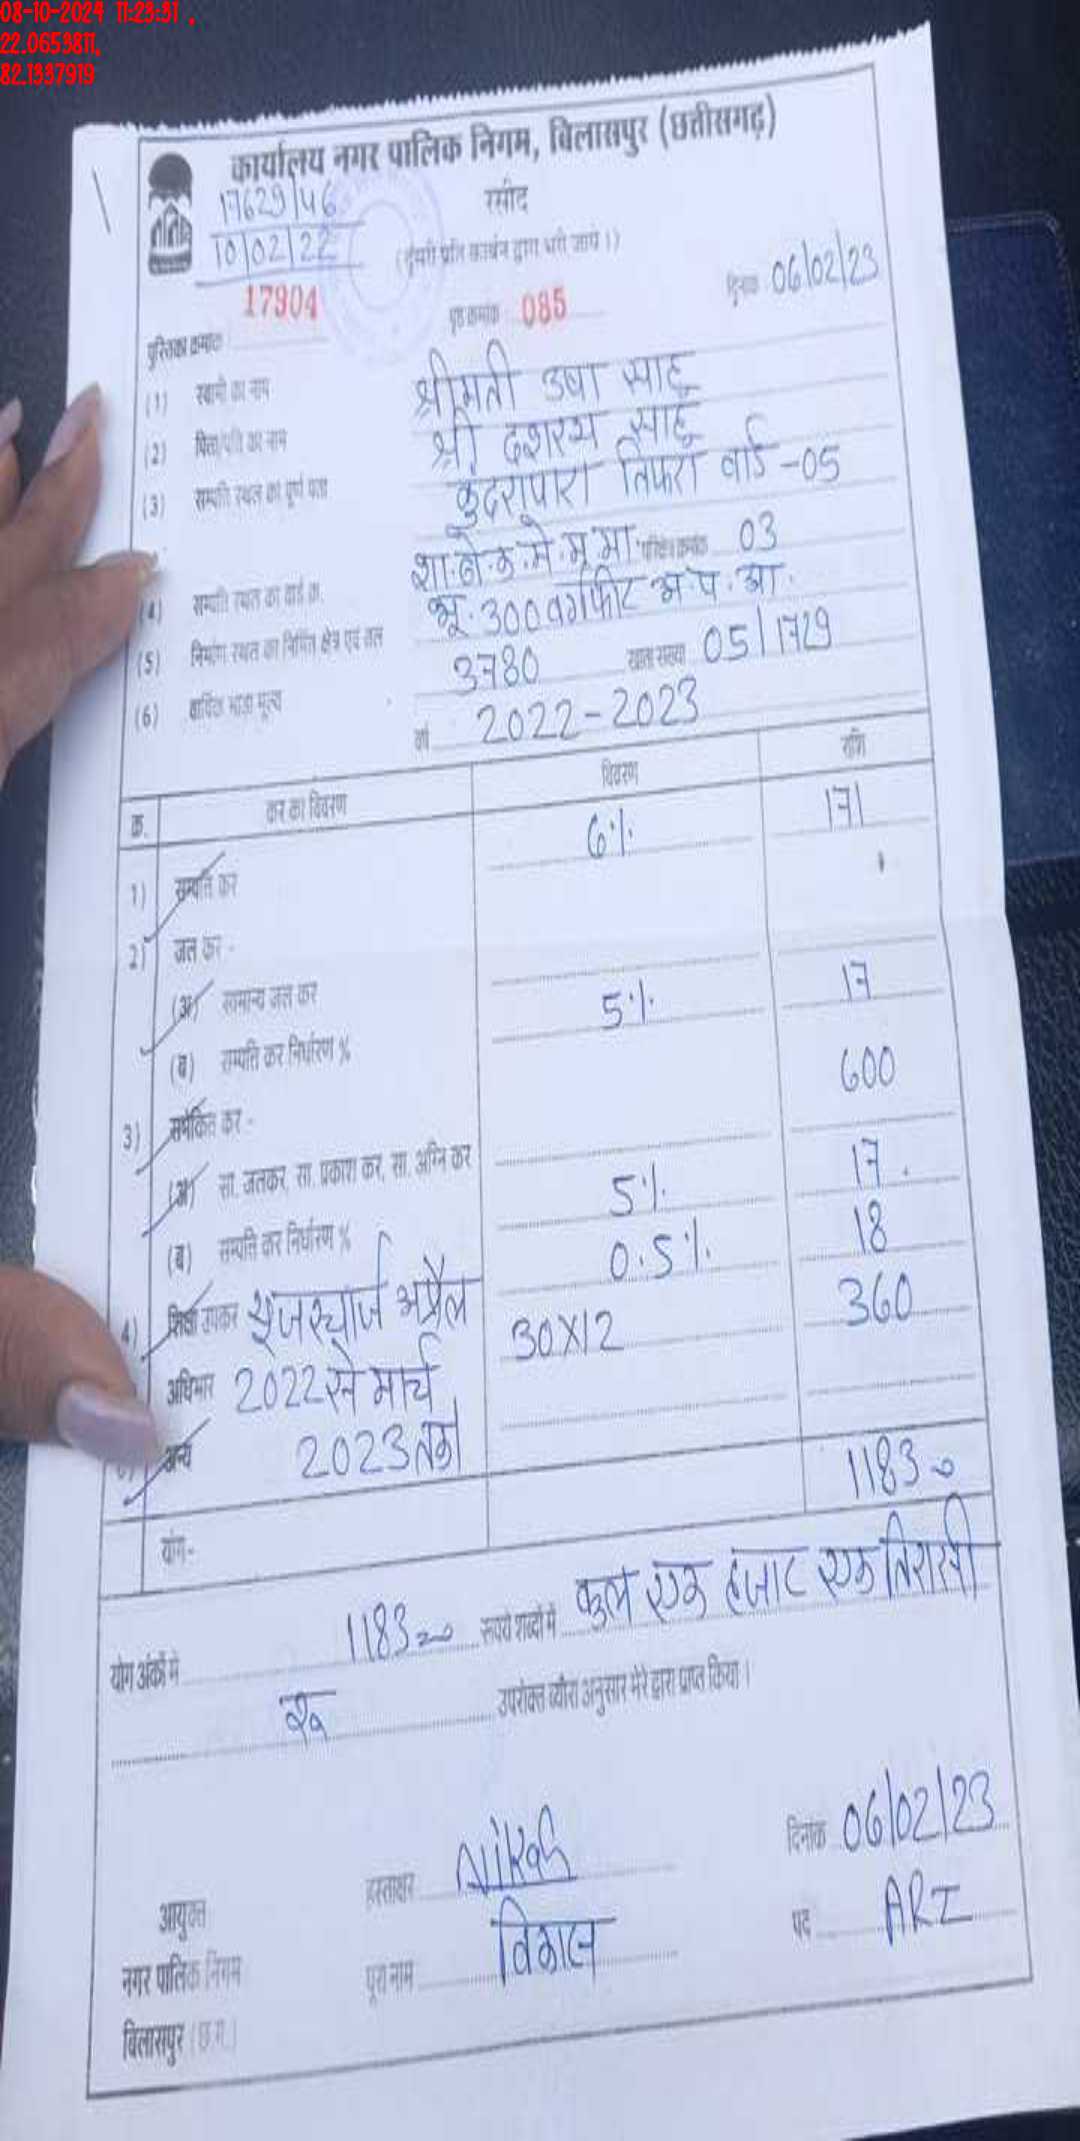 08-10-2024 11:23:31 ,
22.0653811,
82.1337919
कार्यालय नगर पालिक निगम, विलासपुर (छत्तीसगढ़)
17629/46
रसीद
10/02/22
(दूसरी प्रति कार्बन द्वारा भरी जाये।)
दिनांक 06/02/23
पुस्तिका क्रमांक 17904 पृष्ठ क्रमांक 085
(1) स्वामी का नाम श्रीमती उषा साहू
(2) पिता/पति का नाम श्री दशरथ साहू
(3) सम्पत्ति स्थल का पूर्ण पता कुदरापारा तिफरा वार्ड -05
(4) सम्पत्ति स्थल का वार्ड क्र. परिक्षेत्र क्रमांक 03
(5) निर्माण स्थल का निर्मित क्षेत्र एवं तल भू. 300 वर्गफीट अ.प.आ.
(6) वार्षिक भाड़ा मूल्य 3780 खाता संख्या 05/1729
वर्ष 2022-2023
क्र. कर का विवरण विवरण राशि
1) सम्पत्ति कर 6% 171
2) जल कर -
(अ) सामान्य जल कर 5% 17
(ब) सम्पत्ति कर निर्धारण %
600
3) समेकित कर -
(अ) सा. जलकर, सा. प्रकाश कर, सा. अग्नि कर 5% 17
(ब) सम्पत्ति कर निर्धारण % 0.5% 18
4) शिक्षा उपकर यूजरचार्ज अप्रैल 30X12 360
अधिभार 2022 से मार्च
अन्य 2023 तक
योग- 1183
योग अंकों में 1183 रूपये शब्दों में कुल एक हजार एक तिरासी
रू उपरोक्त ब्यौरा अनुसार मेरे द्वारा प्राप्त किया।
दिनांक 06/02/23
आयुक्त हस्ताक्षर
पद ARI
नगर पालिक निगम पूरा नाम विकास
विलासपुर (छ.ग.)